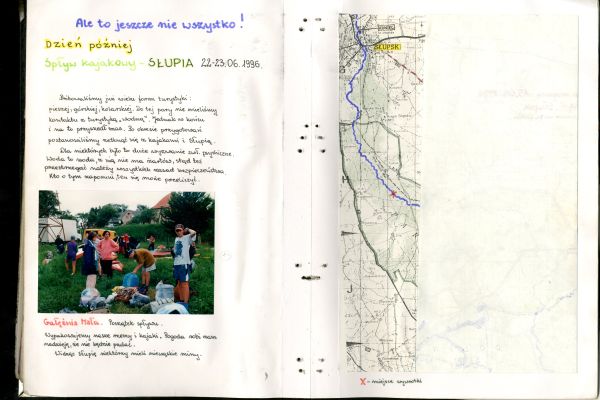 Ale to jeszcze nie wszystko!
Dzień później
Spływ kajakowy - SŁUPIA 22-23.06.1996.
Próbowaliśmy już wielu form turystyki:
pieszej, górskiej, kolarskiej. Do tej pory nie mieliśmy
kontaktu z turystyką „wodną”. Jednak w końcu
i na to przyszedł czas. Po okresie przygotowań
postanowiliśmy zetknąć się z kajakami i Słupią.
Dla niektórych było to duże wyzwanie psychiczne.
Woda to woda, z nią nie ma żartów, stąd też
przestrzegać należy wszystkich zasad bezpieczeństwa.
Kto o tym zapomni, ten się może przeliczyć.
Gałąźnia Mała. Początek spływu.
Wypakowujemy nasze menażki i kajaki. Pogoda robi nam
nadzieję, że nie będzie padać.
Widząc Słupię niektórzy mieli nieciekawe miny.
SŁUPSK
X - miejsce wywrotki